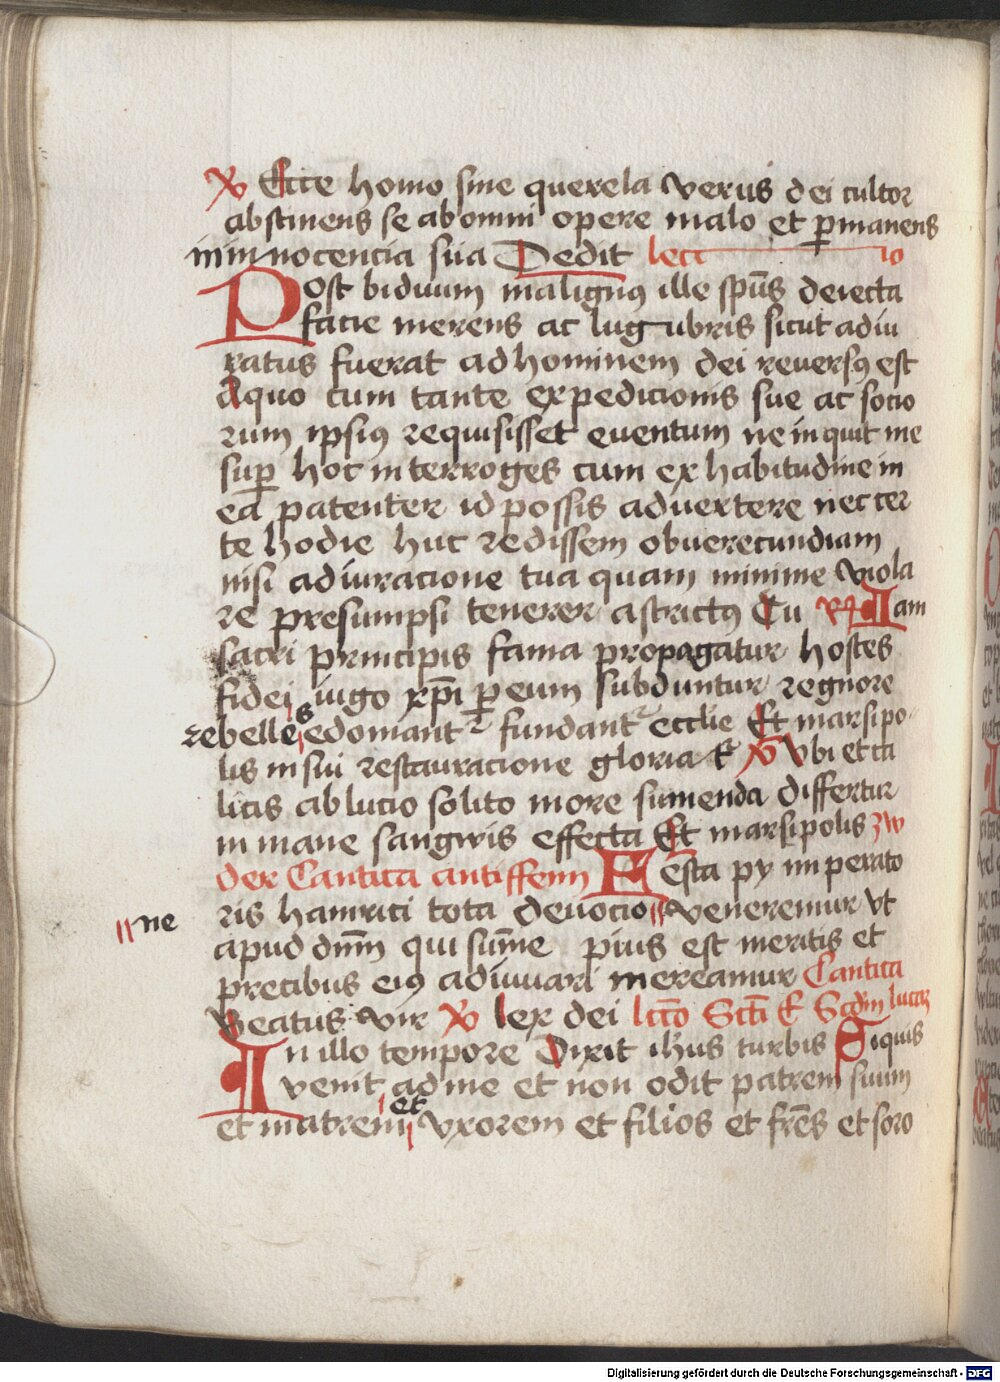 ℣ Ecce homo sine querela verus dei cultor
abstinens se ab omni opere malo et ꝑmanens
in innocencia sua Dedit lectio
Post biduum malignꝰ ille sp̄us deiecta
facie merens ac lugubris sicut adiu
ratus fuerat ad hominem dei reuersꝰ est
A quo cum tante expedicionis sue ac socio
rum ipsiꝰ requisisset euentum ne inquit me
suꝑ hoc interroges cum ex habitudine in
ea patenter id possis aduertere nec cer
te hodie huc redissem ob uerecundiam
nisi adiuracione tua quam minime viola
re presumpsi tenerer astrictꝰ Tu ℟ Iam
sacri principis fama propagatur hostes
fidei iugo xp̄i ꝑ eum subduntur regnore
rebelles edomant᷑ fundant᷑ ecclie Et marsipo
lis in sui restauracione gloriat᷑ ℣ Vbi et ca
licis ablucio solito more sumenda differtur
in mane sangwis effecta Et marsipolis zw
der Cantica antiffenn Festa py imperato
ris hainrici tota deuocio //veneremur vt
//ne
apud dn̄m qui sum̄e pius est meritis et
precibus eiꝰ adiuuari mereamur Cantica
Beatus vir ℣ lex dei lcc̄o Sct̄i E Scd̄m lucaꝫ
In illo tempore Dixit ih̄us turbis Si quis
venit ad me et non odit patrem suum
et matrem et vxorem et filios et fr̄es et soro
Digitalisierung gefördert durch die Deutsche Forschungsgemeinschaft - DFG